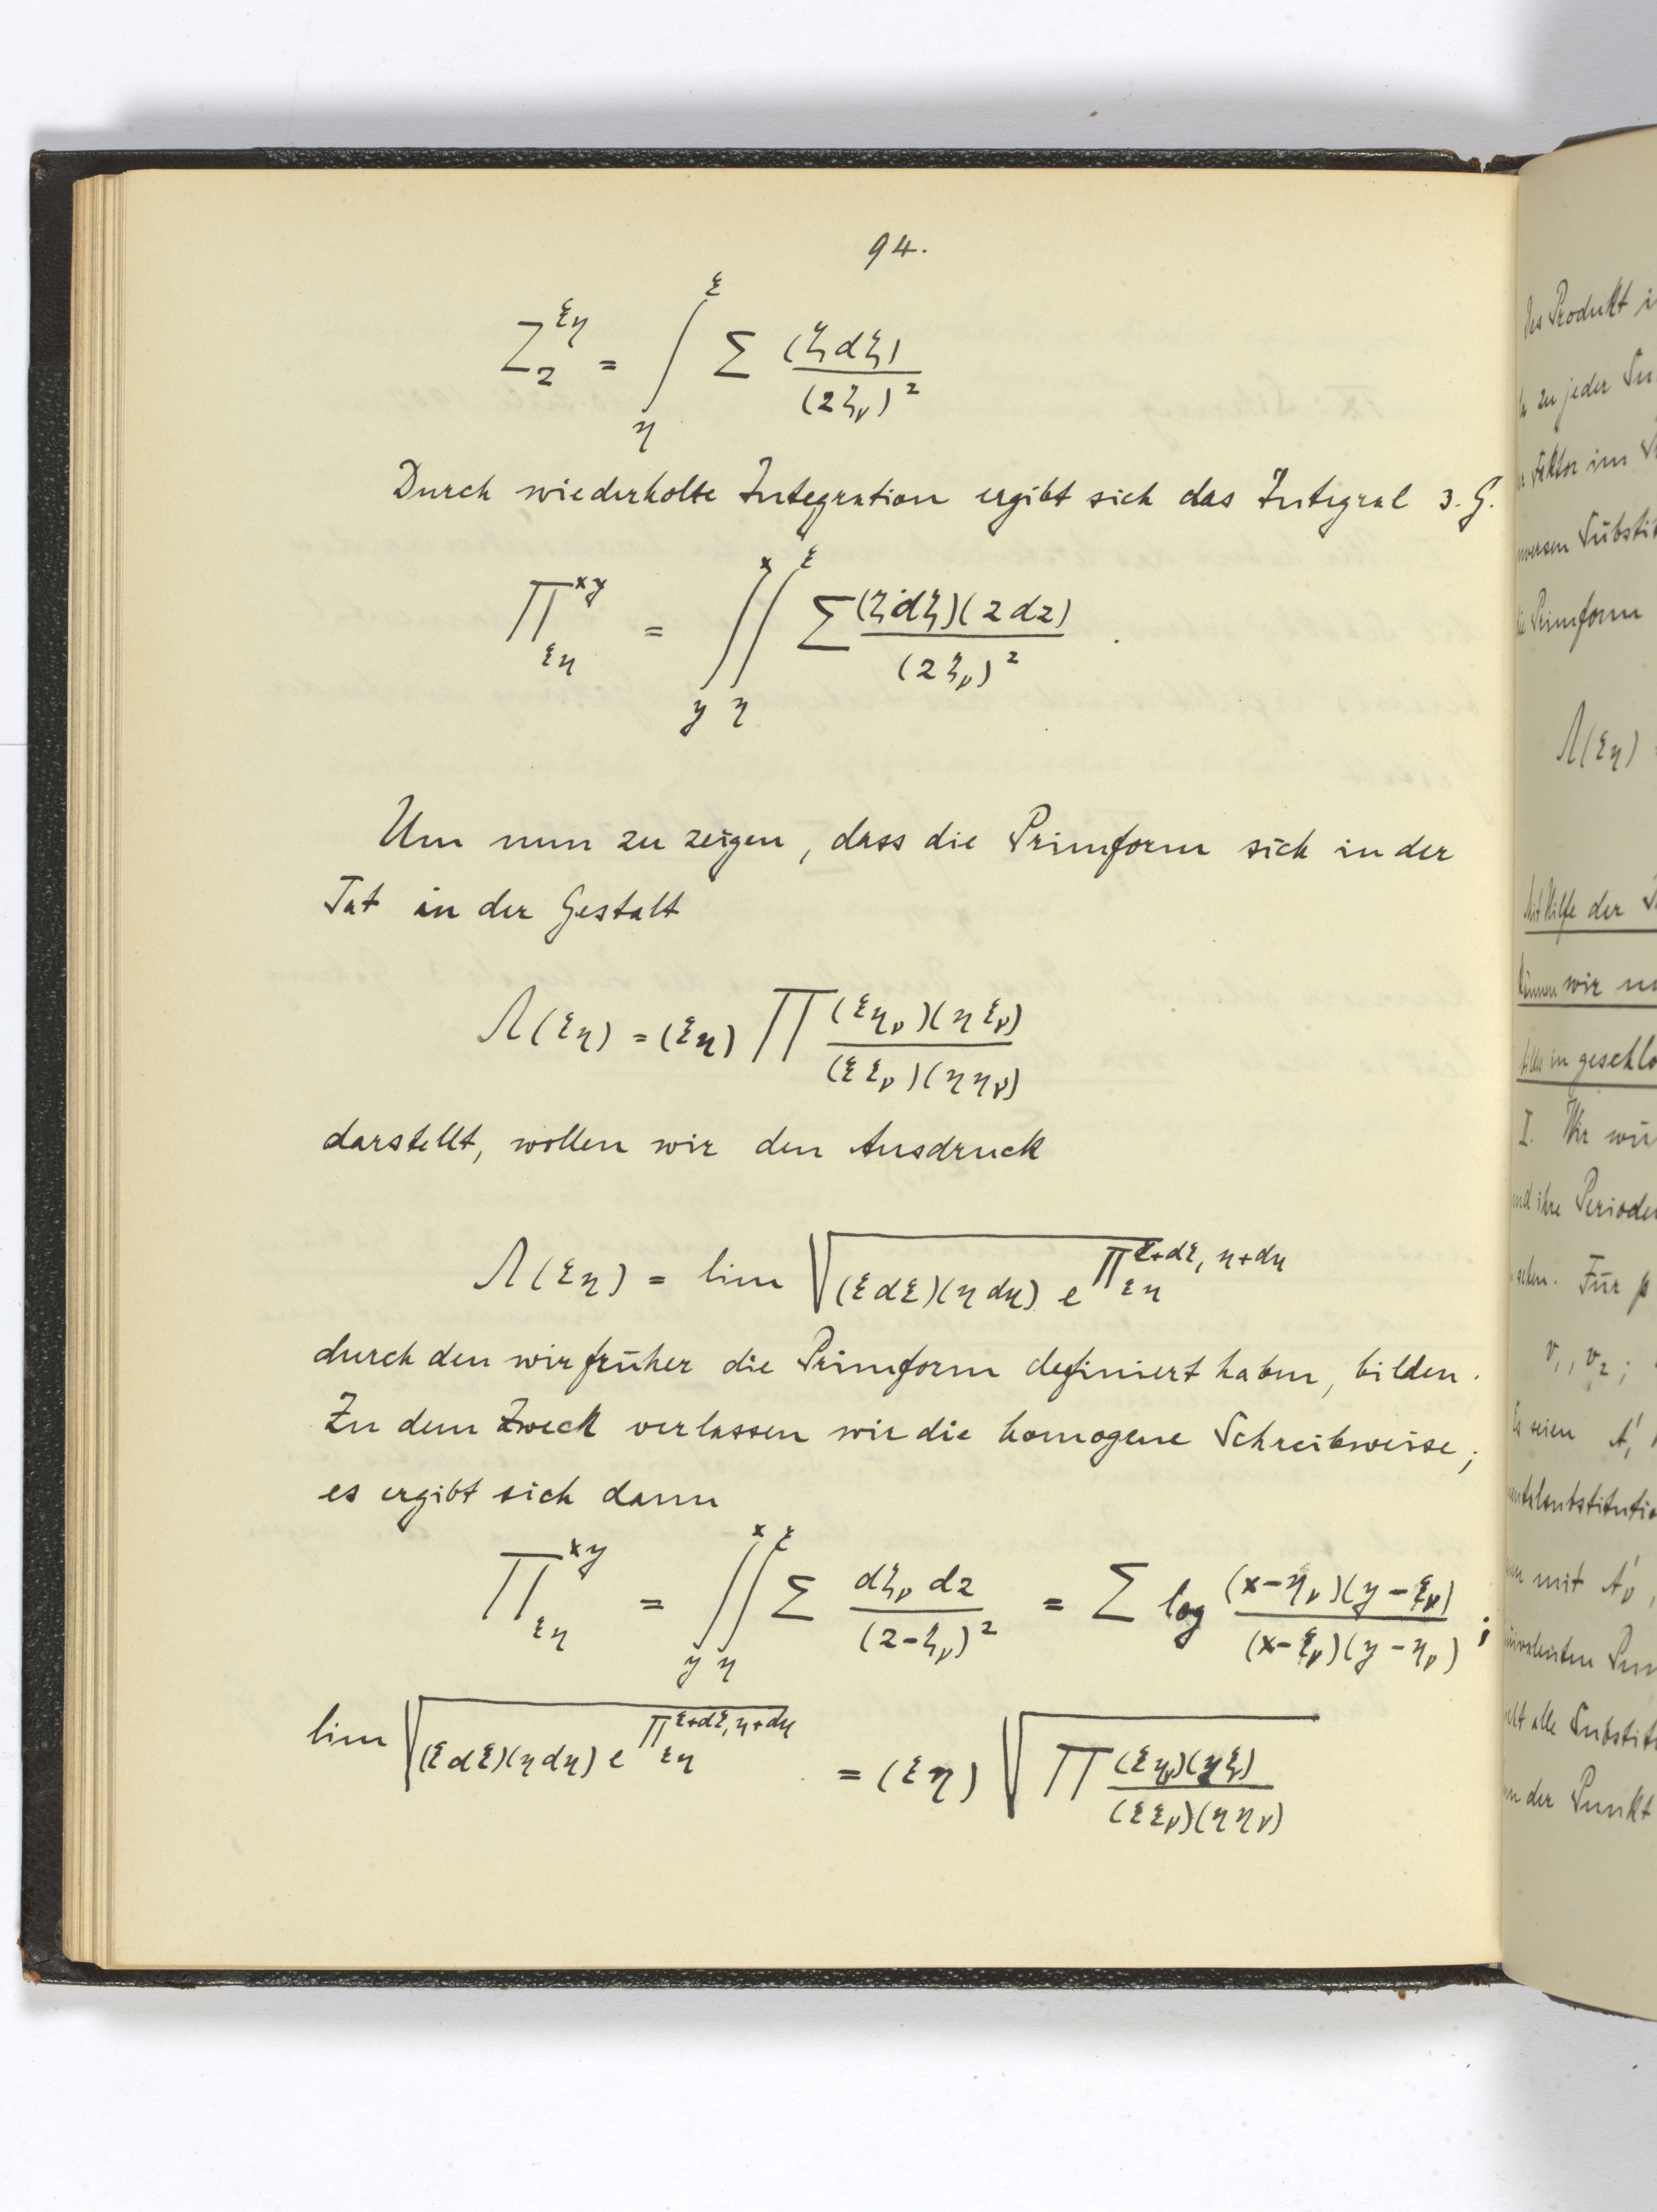 94.
Z_z^{ξη} = ∫_η^ξ Σ (ζdζ) / (zζ_ν)²
Durch wiederholte Integration ergibt sich das Integral 3. G.
Π_{ξη}^{xy} = ∫_y^x ∫_η^ξ Σ (ζdζ)(zdz) / (zζ_ν)² .
Um nun zu zeigen, dass die Primform sich in der
Tat in der Gestalt
Λ(ξη) = (ξη) Π (ξη_ν)(ηξ_ν) / (ξξ_ν)(ηη_ν)
darstellt, wollen wir den Ausdruck
Λ(ξη) = lim √((ξdξ)(ηdη) e^{Π_{ξη}^{ξ+dξ, η+dη}})
durch den wir früher die Primform definiert haben, bilden.
Zu dem Zweck verlassen wir die homogene Schreibweise;
es ergibt sich dann
Π_{ξη}^{xy} = ∫_y^x ∫_η^ξ Σ dζ_ν dz / (z-ζ_ν)² = Σ log (x-η_ν)(y-ξ_ν) / (x-ξ_ν)(y-η_ν) ;
lim √((ξdξ)(ηdη) e^{Π_{ξη}^{ξ+dξ, η+dη}}) = (ξη) √(Π (ξη_ν)(ηξ) / (ξξ_ν)(ηη_ν))
Produkt
zu jeder
Faktor im
Primform
Λ(ξη)
Mit Hilfe der
können wir
in geschlo
I. Wir
und ihre Perioden
Für p
v₁, v₂;
Es seien A'₁
mit A'_ν,
alle Substit
der Punkt